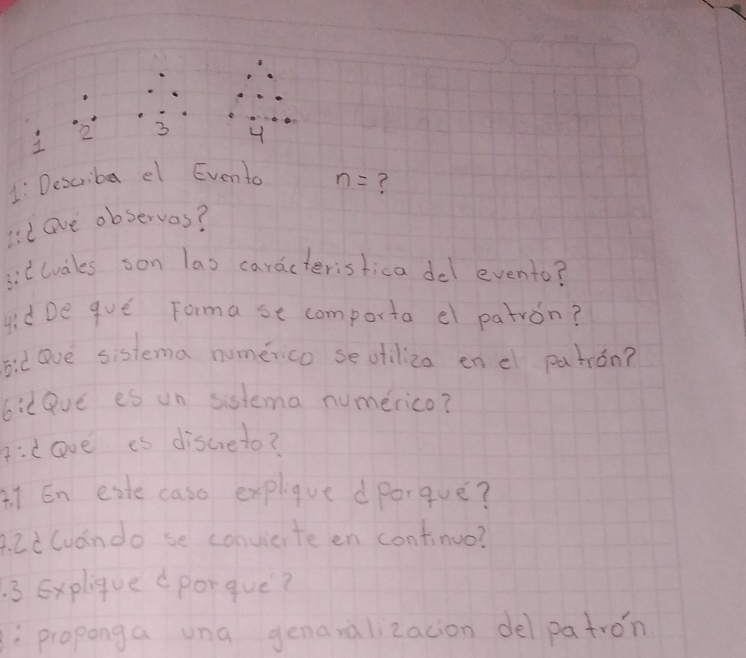 1 2 3 4
1: Describa el Evento n=?
2:¿Qué observas?
3:¿Cuáles son las carácteristica del evento?
4:¿De qué Forma se comporta el patrón?
5:¿Qué sistema numérico se utiliza en el patrón?
6:¿Qué es un sistema numérico?
7:¿Qué es discreto?
7.1 En este caso explique ¿Porqué?
7.2¿Cuándo se convierte en continuo?
.3 Explique ¿porque?
: proponga una genaralizacion del patrón